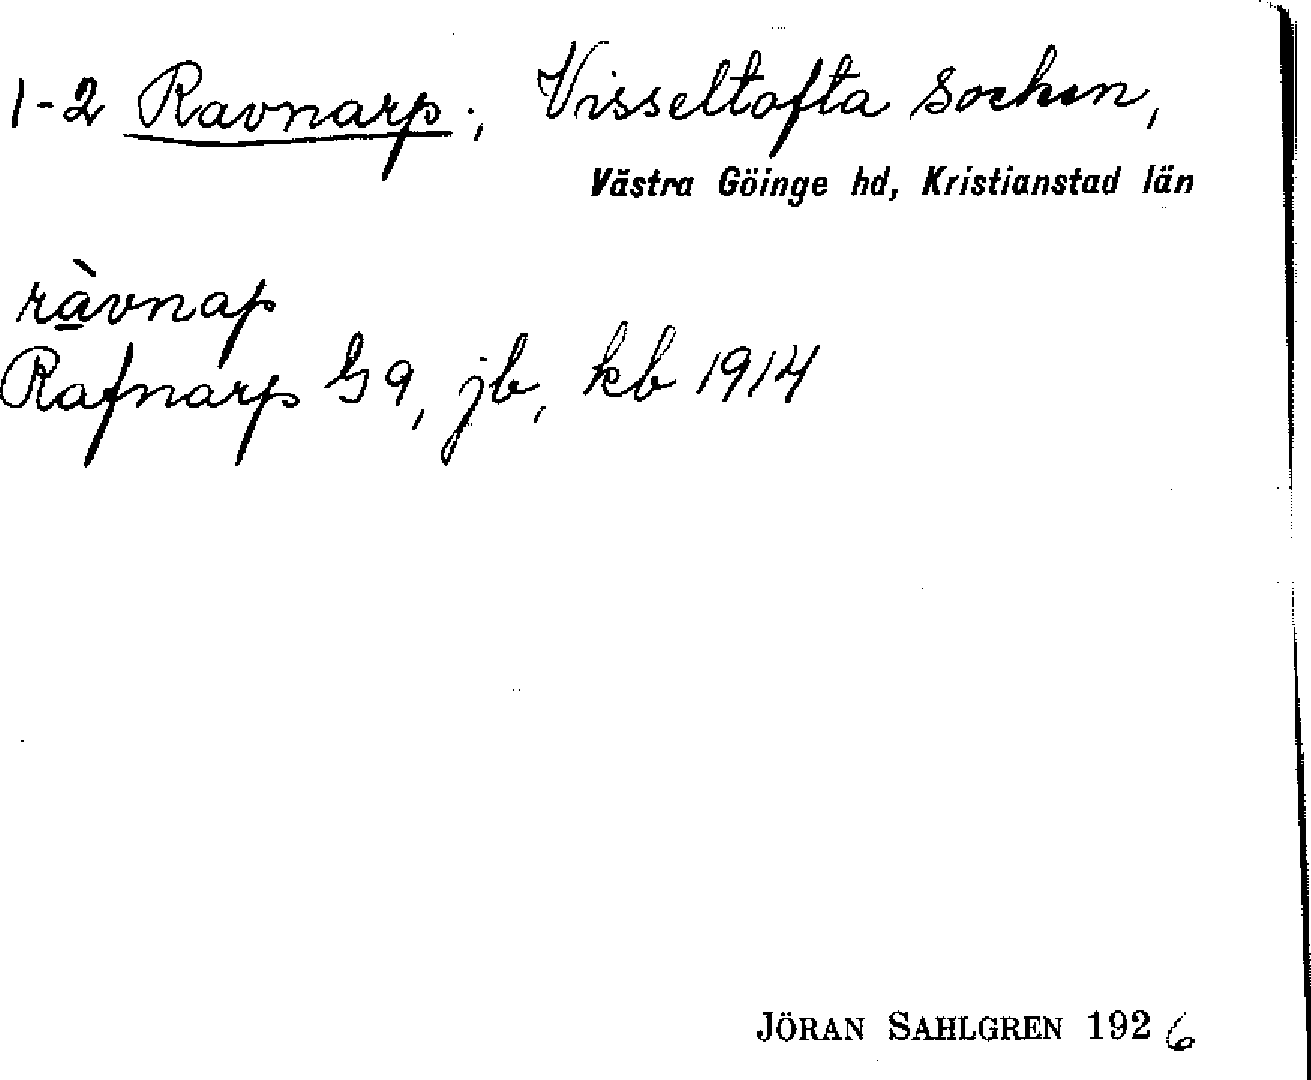 1-2 Ravnarp; Visseltofta socken,
Västra Göinge hd, Kristianstad län
ràvnap
Rafnarp G9, jb, kb 1914
JÖRAN SAHLGREN 1926